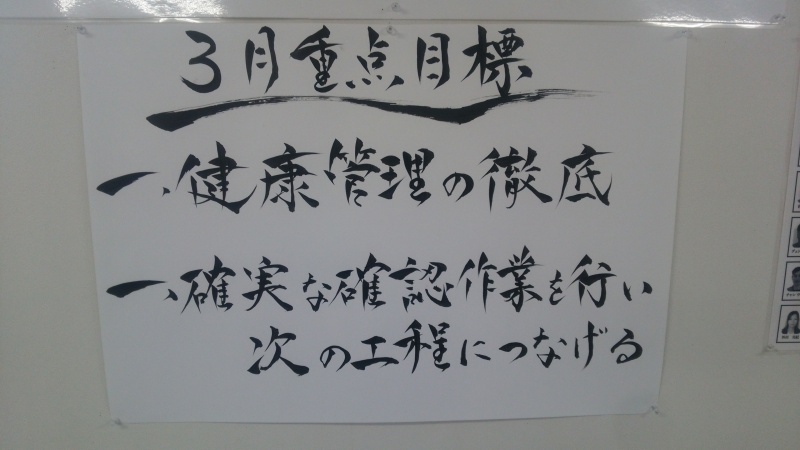 3月重点目標
一、健康管理の徹底
一、確実な確認作業を行い
次の工程につなげる